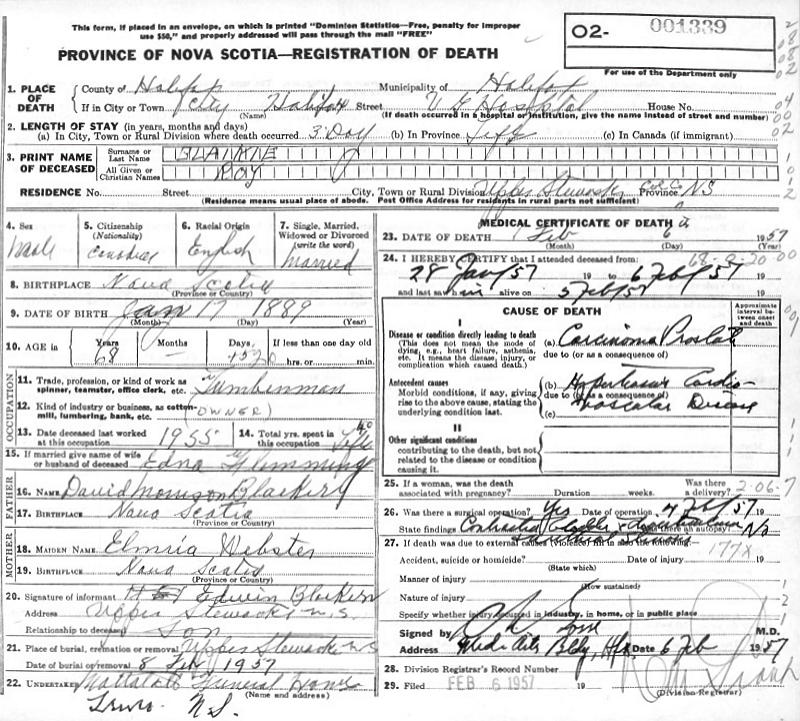 This form, if placed in an envelope, on which is printed "Dominion Statistics—Free, penalty for improper
use $50," and properly addressed will pass through the mail "FREE"
PROVINCE OF NOVA SCOTIA—REGISTRATION OF DEATH
O2- 001339
For use of the Department only
1. PLACE OF DEATH
County of Halifax Municipality of Halifax
If in City or Town City Halifax Street V G Hospital House No.
(Name) (If death occurred in a hospital or institution, give the name instead of street and number)
2. LENGTH OF STAY (in years, months and days)
(a) In City, Town or Rural Division where death occurred 3 Day (b) In Province Life (c) In Canada (if immigrant)
3. PRINT NAME OF DECEASED
Surname or Last Name BLAIKIE
All Given or Christian Names ROY
RESIDENCE No. Street City, Town or Rural Division Upper Stewiacke Col. Co. Province NS
(Residence means usual place of abode. Post Office Address for residents in rural parts not sufficient)
4. Sex Male
5. Citizenship (Nationality) Canadian
6. Racial Origin English
7. Single, Married, Widowed or Divorced (write the word) Married
8. BIRTHPLACE Nova Scotia
(Province or Country)
9. DATE OF BIRTH Jan 17 1889
(Month) (Day) (Year)
10. AGE in Years 68 Months — Days 20 If less than one day old
hrs. or min.
OCCUPATION
11. Trade, profession, or kind of work as spinner, teamster, office clerk, etc. Lumberman
12. Kind of industry or business, as cotton-mill, lumbering, bank, etc. (OWNER)
13. Date deceased last worked at this occupation 1955 14. Total yrs. spent in this occupation 40 Life
15. If married give name of wife or husband of deceased Edna Flemming
FATHER
16. NAME David Morrison Blaikie
17. BIRTHPLACE Nova Scotia
(Province or Country)
MOTHER
18. MAIDEN NAME Elmira Webster
19. BIRTHPLACE Nova Scotia
(Province or Country)
20. Signature of informant Edwin Blaikie
Address Upper Stewiacke N.S.
Relationship to deceased Son
21. Place of burial, cremation or removal Upper Stewiacke NS
Date of burial or removal 8 Feb 1957
22. UNDERTAKER Mattatall Funeral Home
(Name and address)
Truro N.S.
MEDICAL CERTIFICATE OF DEATH
23. DATE OF DEATH Feb 6 1957
(Month) (Day) (Year)
24. I HEREBY CERTIFY that I attended deceased from: 68-8-20-00
28 Jan/57 19 to 6 Feb/57 19
and last saw him alive on 5 Feb/57 19
CAUSE OF DEATH
Approximate interval between onset and death
I
Disease or condition directly leading to death
(This does not mean the mode of dying, e.g., heart failure, asthenia, etc. It means the disease, injury, or complication which caused death.)
(a) Carcinoma Prostate
due to (or as a consequence of)
Antecedent causes
Morbid conditions, if any, giving rise to the above cause, stating the underlying condition last.
(b) Hypertensive Cardio-
due to (or as a consequence of)
vascular Disease
(c)
II
Other significant conditions
contributing to the death, but not related to the disease or condition causing it.
25. If a woman, was the death associated with pregnancy? Duration weeks. Was there a delivery? 2-06-7
26. Was there a surgical operation? Yes Date of operation 4 Feb/57 19
State findings Contracted bladder & Was there an autopsy? No
27. If death was due to external causes (violence) fill in also the following:
177X
Accident, suicide or homicide? Date 19
(State which)
Manner of injury
(How sustained)
Nature of injury
Specify whether injury occurred in industry, in home, or in public place
Signed by M.D.
Address Medic Arts Bldg, Hfx. Date 6 Feb 1957
28. Division Registrar's Record Number
29. Filed FEB 6 1957
(Division Registrar)